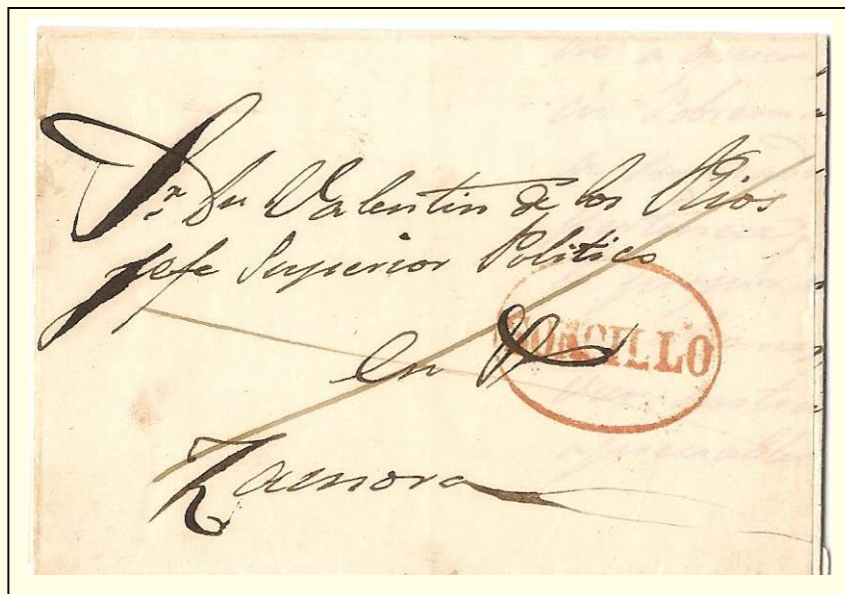 Sr. Dn Valentin de los Rios
Jefe Superior Politico
SONCILLO
En
Zamora